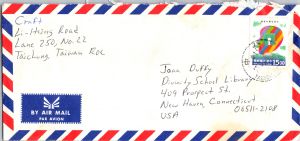 Craft
Li-Hsing Road
Lane 250, No. 22
Taichung Taiwan ROC
Joan Duffy
Divinity School Library
409 Prospect St.
New Haven Connecticut
06511-2108
USA
BY AIR MAIL
PAR AVION
15.00